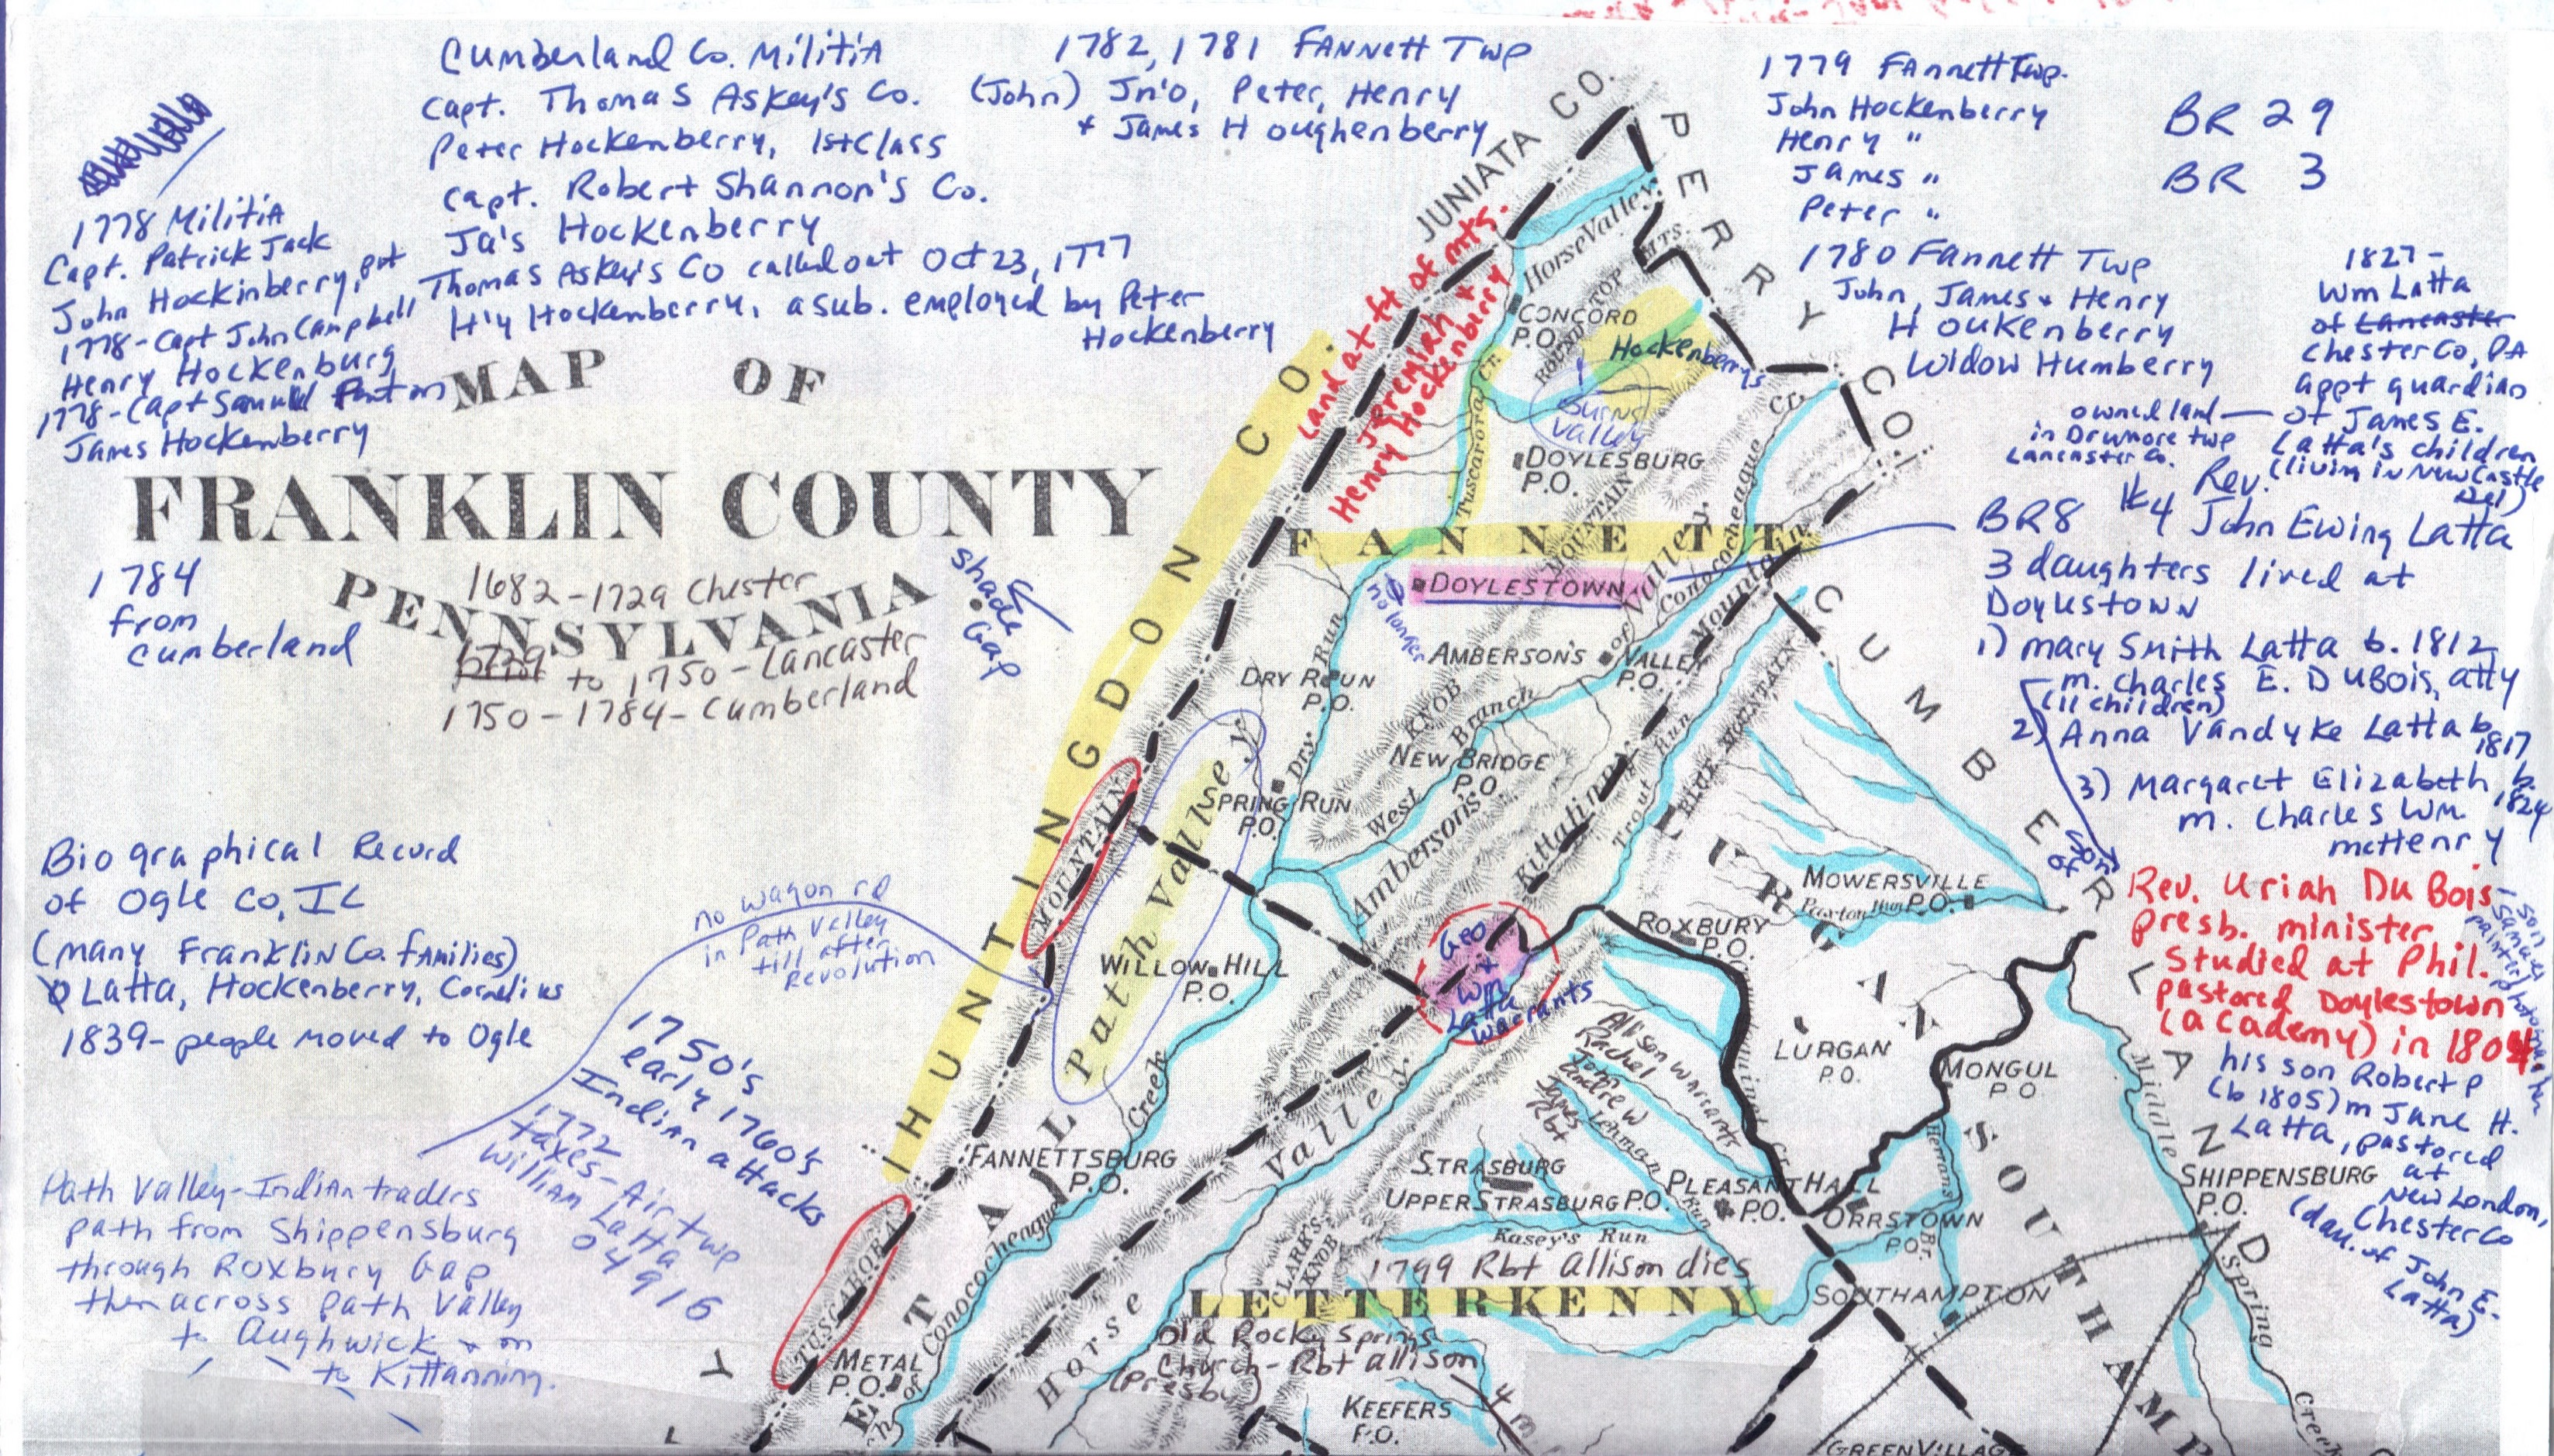 Cumberland Co. Militia
Capt. Thomas Askey's Co.
Peter Hockenberry, 1st Class
Capt. Robert Shannon's Co.
Ja's Hockenberry
Thomas Askey's Co called out Oct 23, 1777
H'y Hockenberry, a sub. employed by Peter
Hockenberry
1782, 1781 Fannett Twp
(John) Jn'o, Peter, Henry
+ James Houghenberry
1779 Fannett Twp.
John Hockenberry
Henry "
James "
Peter "
BR 29
BR 3
1780 Fannett Twp
John, James + Henry
Houkenberry
Widow Humberry
1827-
Wm Latta
of Lancaster
Chester Co, PA
appt guardian
of James E.
Latta's children
(livin in New Castle
Del)
owned land
in Drumore twp
Lancaster Co.
1778 Militia
Capt. Patrick Jack
John Hockinberry, pvt
1778-Capt John Campbell
Henry Hockenburg
1778-Capt Samuel
James Hockenberry
MAP OF
FRANKLIN COUNTY
PENNSYLVANIA
1784
from
Cumberland
1682-1729 Chester
1729 to 1750-Lancaster
1750-1784-Cumberland
Shade
Gap
JUNIATA CO.
PERRY CO.
Land at ft of mts.
Jeremiah +
Henry Hockenberry
Horse Valley
CONCORD
P.O.
ROUND TOP
MTS.
Hockenberrys
Burns
Valley
Tuscarora Cr.
DOYLESBURG
P.O.
FANNETT
DOYLESTOWN
no longer
MOUNTAIN
Conococheague Cr.
Mountain
BR8 #4 Rev. John Ewing Latta
3 daughters lived at
Doylestown
1) Mary Smith Latta b. 1812
m. Charles E. DuBois, atty
(11 children)
2) Anna Vandyke Latta b
1817
3) Margaret Elizabeth b.
1824
m. Charles Wm.
McHenry
son
of
Rev. Uriah DuBois
Presb. minister
Studied at Phil.
pastored Doylestown
(academy) in 1804
- son
Samuel
painter, photographer
his son Robert P
(b 1805) m Jane H.
Latta, pastored
at
New London,
Chester Co
(dau. of John E.
Latta)
HUNTINGDON CO.
CUMBERLAND
DRY RUN
P.O.
Dry Run
AMBERSON'S
VALLEY
P.O.
KNOB
West Branch of
NEW BRIDGE
P.O.
SPRING RUN
P.O.
Amberson's Valley
Kittatinny
Trout Run
BLUE MOUNTAIN
MOUNTAIN
Path Valley
WILLOW HILL
P.O.
LURGAN
MOWERSVILLE
P.O.
Paxton Run
ROXBURY
P.O.
Geo
+
Wm
Latta
warrants
LURGAN
P.O.
MONGUL
P.O.
Biographical Record
of Ogle Co, IL
(many Franklin Co. families)
Latta, Hockenberry, Cornelius
1839-people moved to Ogle
no wagon rd
in Path Valley
till after
Revolution
1750's
early 1760's
Indian attacks
1772
taxes-Air twp
William Latta
04916
Path Valley-Indian traders
path from Shippensburg
through Roxbury Gap
then across Path Valley
to Aughwick + on
to Kittanning.
Alison warrants
Rachel
John
Andrew
James
Rbt
Lehman Run
FANNETTSBURG
P.O.
Creek
METAL
Conococheague
Horse Valley
STRASBURG
UPPER STRASBURG P.O.
PLEASANT HALL
P.O.
Kasey's Run
CLARK'S
KNOB
1799 Rbt Allison dies
LETTERKENNY
Old Rocky Springs
Church-Rbt Allison
(Presby)
4 m
KEEFERS
P.O.
TUSCARORA
METAL
P.O.
ORRSTOWN
P.O.
Herrons Br.
SOUTHAMPTON
SOUTHAMP
SHIPPENSBURG
P.O.
Middle Spring Creek
GREENVILLAGE